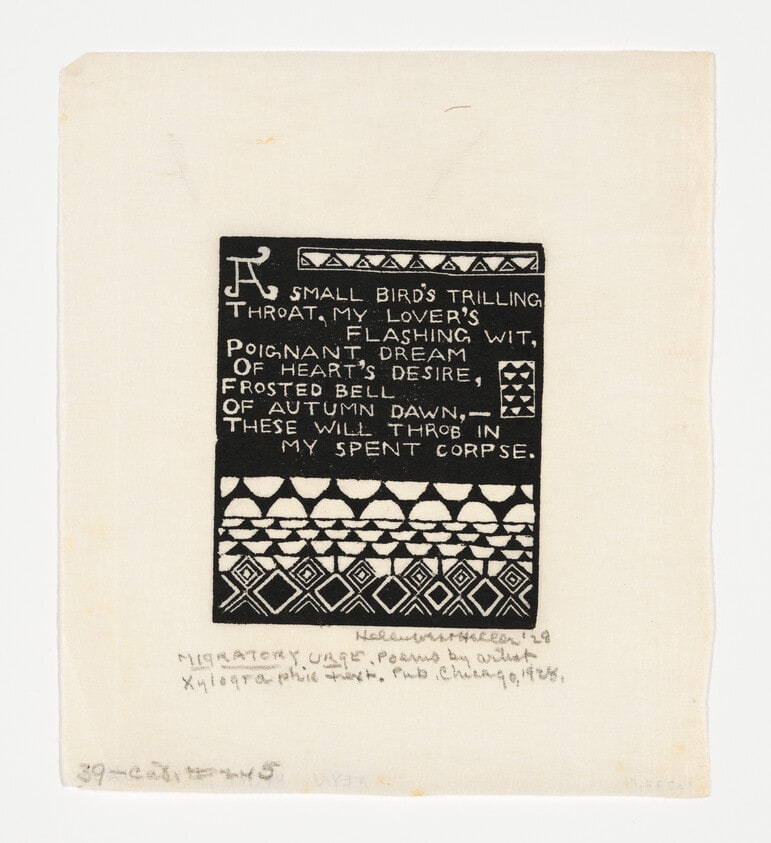 A SMALL BIRD'S TRILLING
THROAT, MY LOVER'S
FLASHING WIT,
POIGNANT DREAM
OF HEART'S DESIRE,
FROSTED BELL
OF AUTUMN DAWN,—
THESE WILL THROB IN
MY SPENT CORPSE.
Helen West Heller '28
MIGRATORY URGE. Poems by artist
Xylographic text. Pub. Chicago, 1928.
39-Cat. # 245